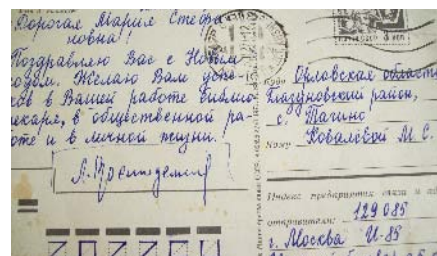 Дорогая Мария Стефа
новна!
Поздравляю Вас с Новым
годом. Желаю Вам успе
хов в Вашей работе библио
текаря, в общественной ра-
боте и в личной жизни!
Куда Орловская область
Глазуновский район,
с. Тагино
Кому Ковалёвой М. С.
Индекс предприятия связи и
отправителя: 129085
г. Москва И-85